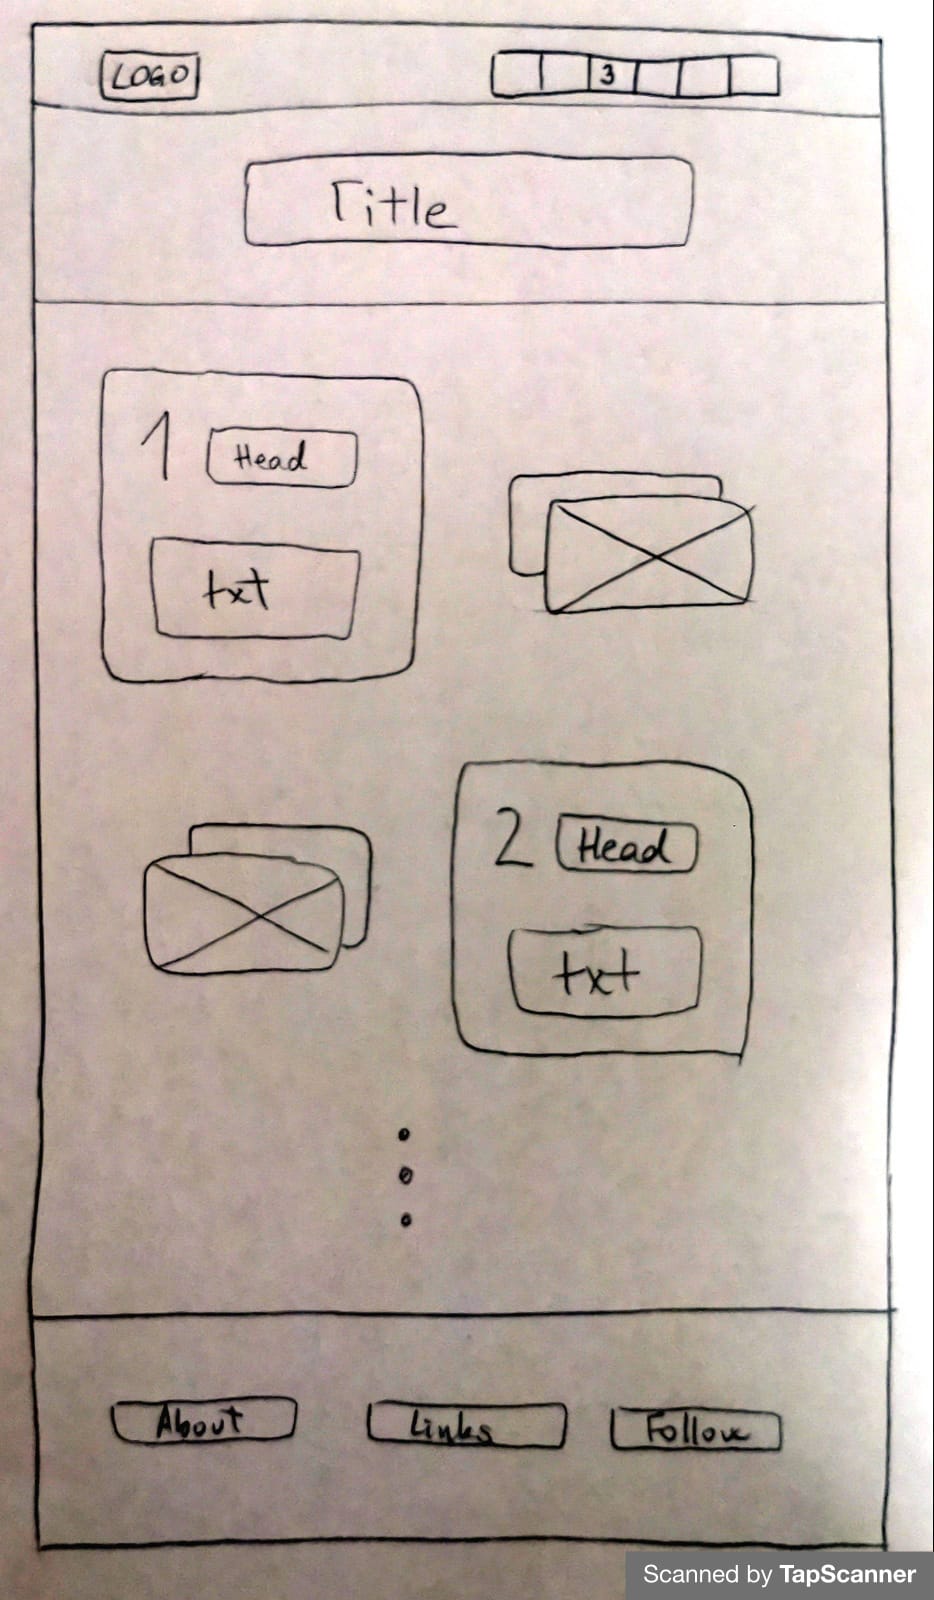 LOGO
3
Title
1 Head
txt
2 Head
txt
About Links Follow
Scanned by TapScanner